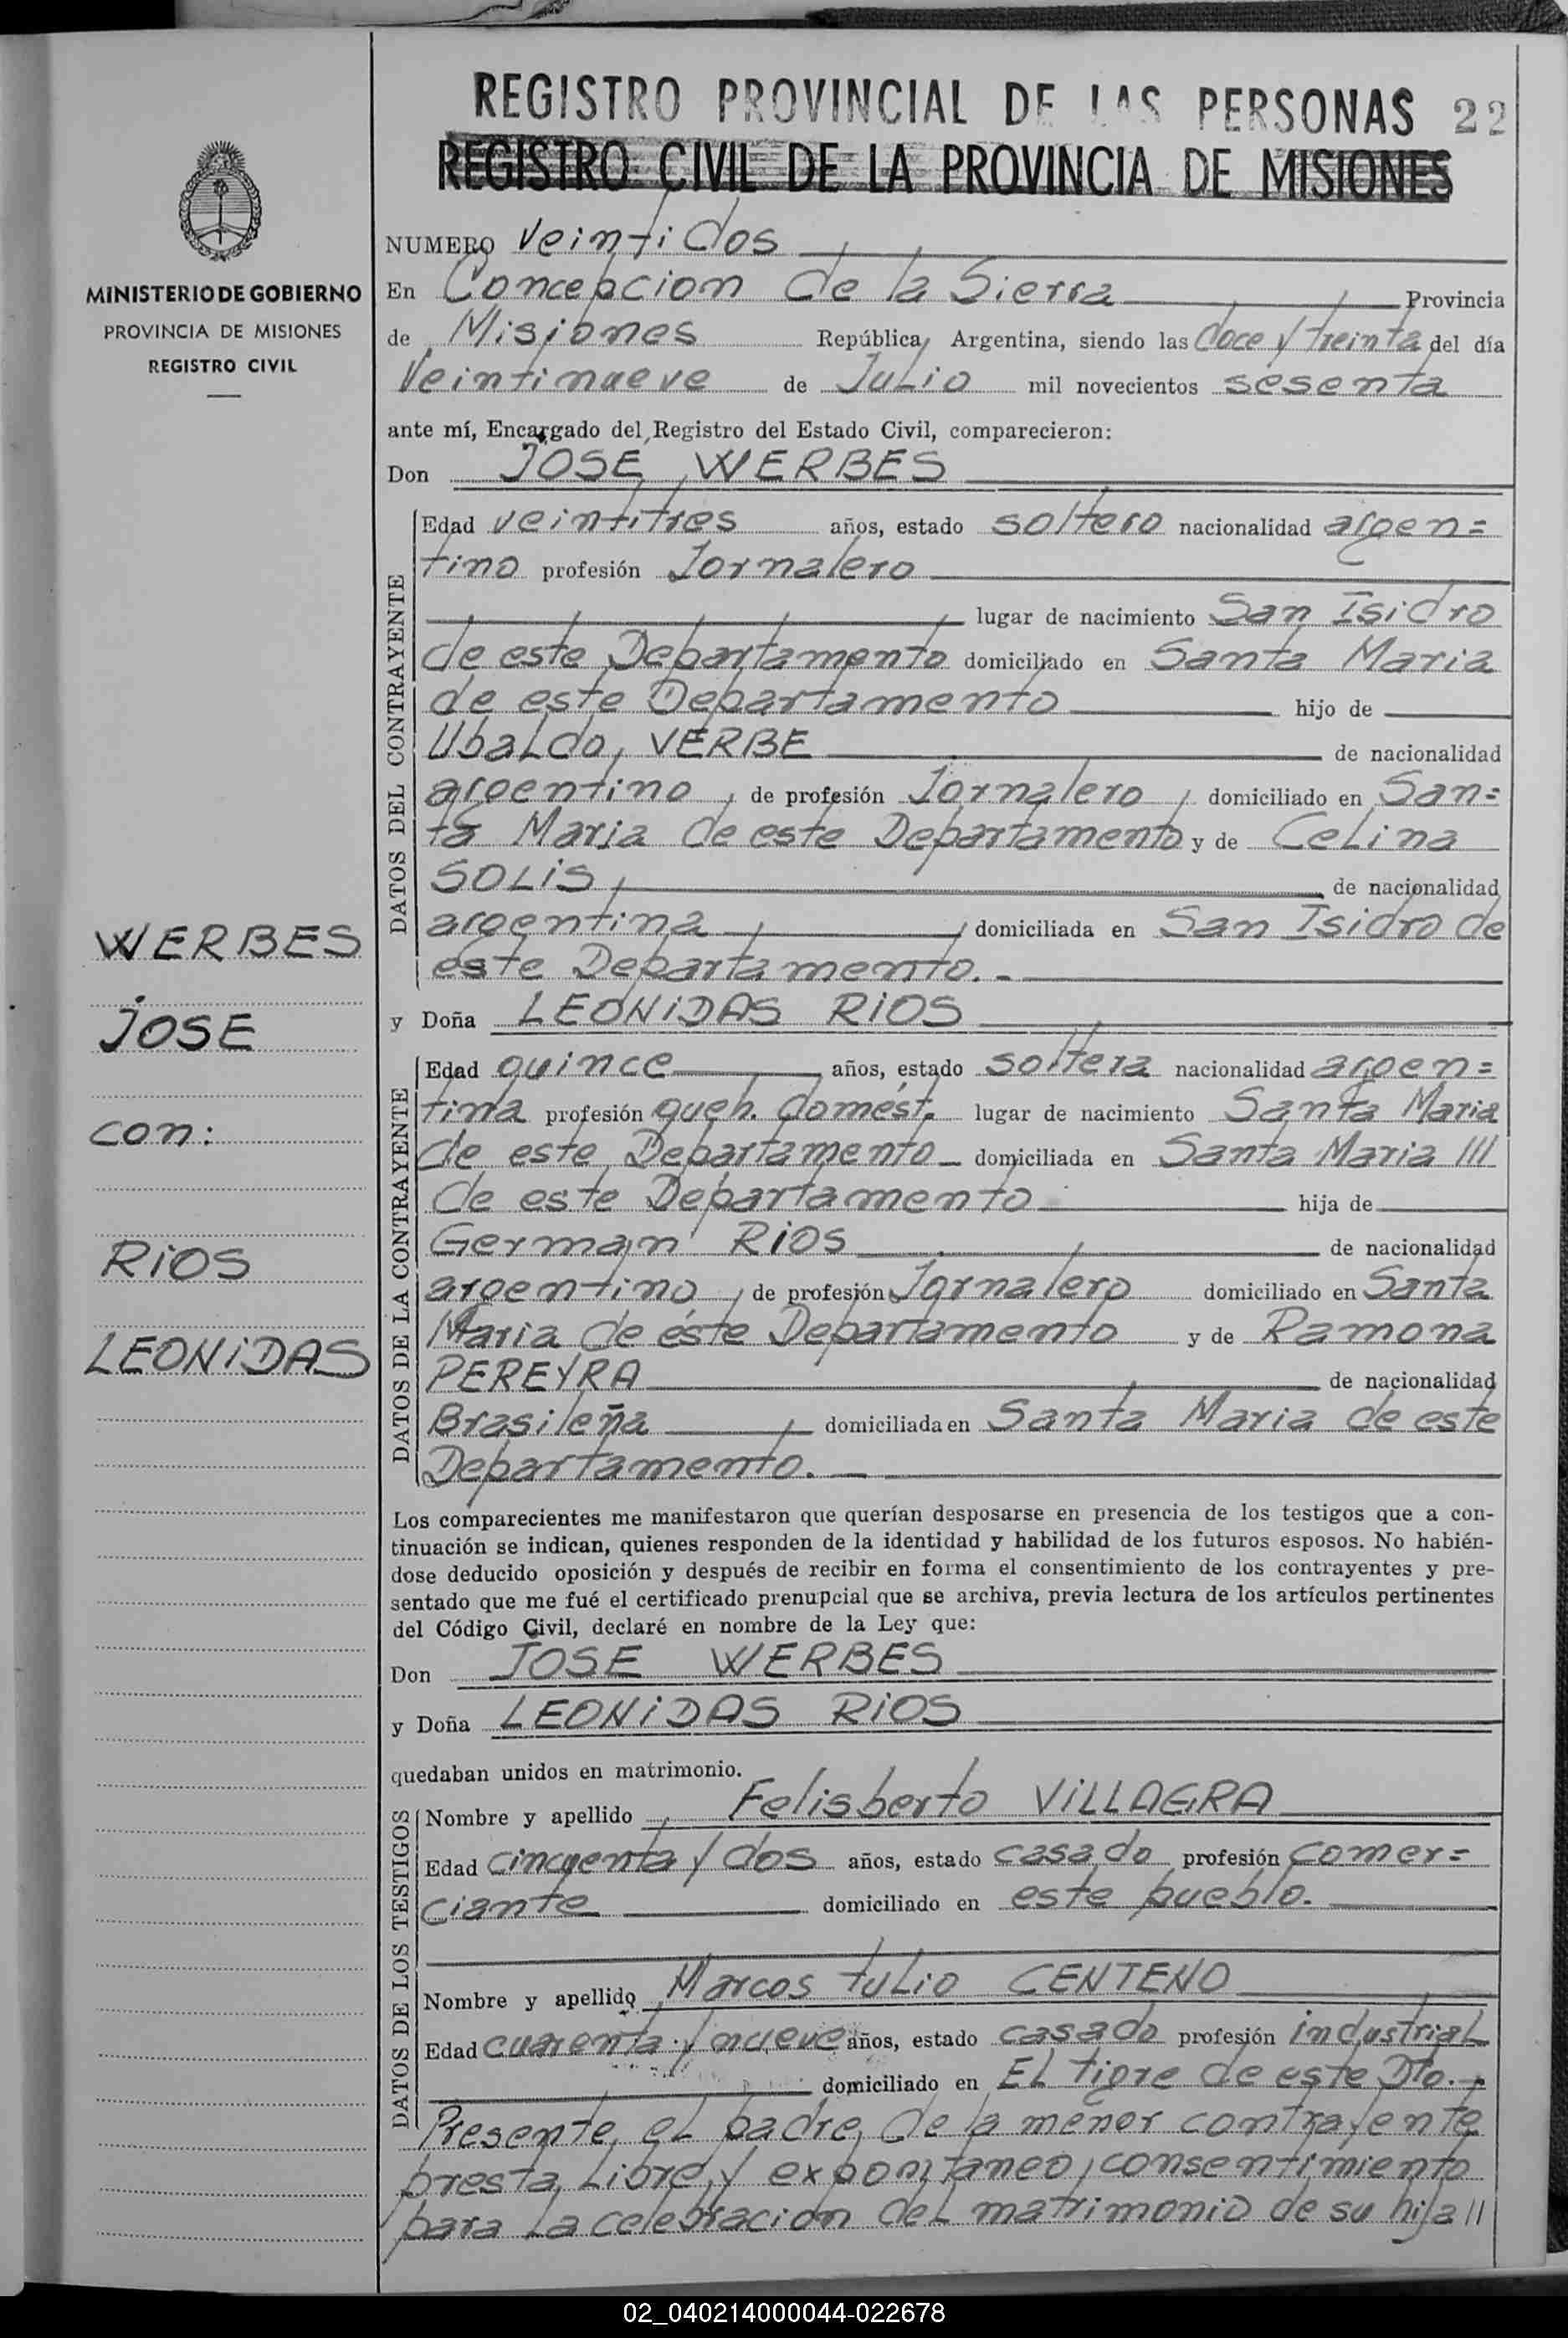 REGISTRO PROVINCIAL DE LAS PERSONAS 22
REGISTRO CIVIL DE LA PROVINCIA DE MISIONES
MINISTERIO DE GOBIERNO
PROVINCIA DE MISIONES
REGISTRO CIVIL
WERBES
JOSE
con:
RIOS
LEONIDAS
NUMERO Veintidos
En Concepcion de la Sierra Provincia
de Misiones República Argentina, siendo las doce y treinta del día
Veintinueve de Julio mil novecientos sesenta
ante mí, Encargado del Registro del Estado Civil, comparecieron:
Don JOSE WERBES
DATOS DEL CONTRAYENTE
Edad veintitres años, estado soltero nacionalidad argen=
tino profesión Jornalero
lugar de nacimiento San Isidro
de este Departamento domiciliado en Santa Maria
de este Departamento hijo de
Ubaldo, VERBE de nacionalidad
argentino, de profesión Jornalero, domiciliado en San=
ta Maria de este Departamento y de Celina
SOLIS, de nacionalidad
argentina, domiciliada en San Isidro de
este Departamento.-
y Doña LEONIDAS RIOS
DATOS DE LA CONTRAYENTE
Edad quince años, estado soltera nacionalidad argen=
tina profesión queh. domest. lugar de nacimiento Santa Maria
de este Departamento domiciliada en Santa Maria III
de este Departamento hija de
German RIOS de nacionalidad
argentino, de profesión Jornalero domiciliado en Santa
Maria de éste Departamento y de Ramona
PEREYRA de nacionalidad
Brasileña domiciliada en Santa Maria de este
Departamento.-
Los comparecientes me manifestaron que querían desposarse en presencia de los testigos que a con-
tinuación se indican, quienes responden de la identidad y habilidad de los futuros esposos. No habién-
dose deducido oposición y después de recibir en forma el consentimiento de los contrayentes y pre-
sentado que me fué el certificado prenupcial que se archiva, previa lectura de los artículos pertinentes
del Código Civil, declaré en nombre de la Ley que:
Don JOSE WERBES
y Doña LEONIDAS RIOS
quedaban unidos en matrimonio.
DATOS DE LOS TESTIGOS
Nombre y apellido Felisberto VILLAGRA
Edad cincuenta y dos años, estado casado profesión comer=
ciante domiciliado en este pueblo.
Nombre y apellido Marcos tulio CENTENO
Edad cuarenta y nueve años, estado casado profesión industrial
domiciliado en El tigre de este Dto.-
Presente, el padre, de la menor contrayente
presta libre, y expontaneo, consentimiento
para la celebracion del matrimonio de su hija//
02_040214000044-022678